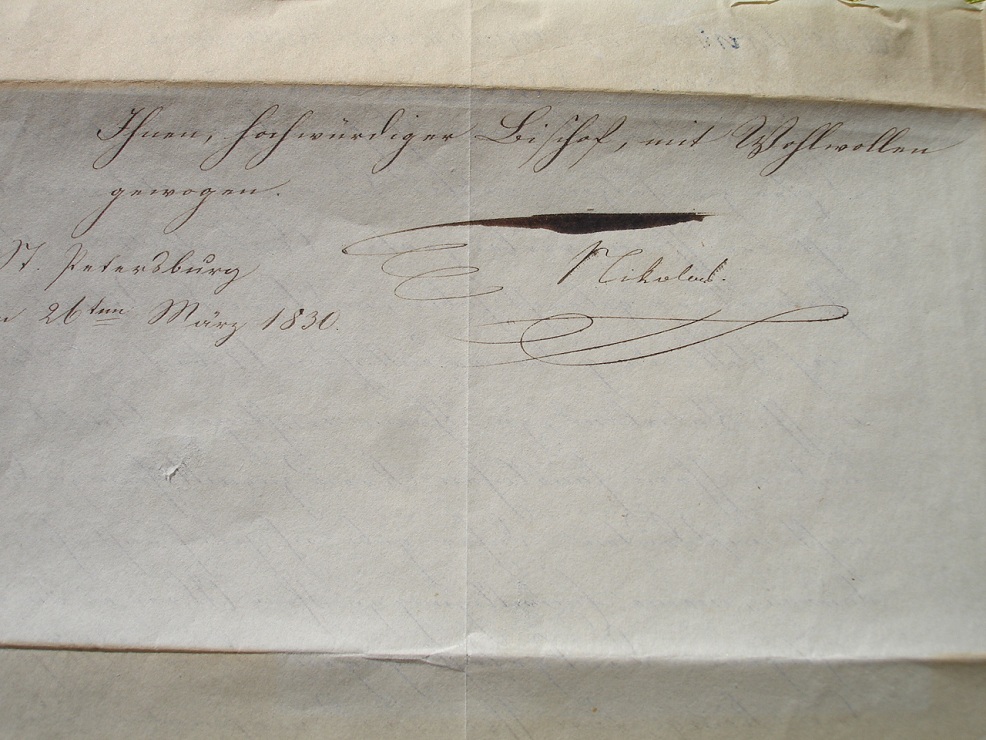 Ihnen, hochwürdiger Bischof, mit Wohlwollen
gewogen.
St. Petersburg
26ten März 1830.
Nikolas.